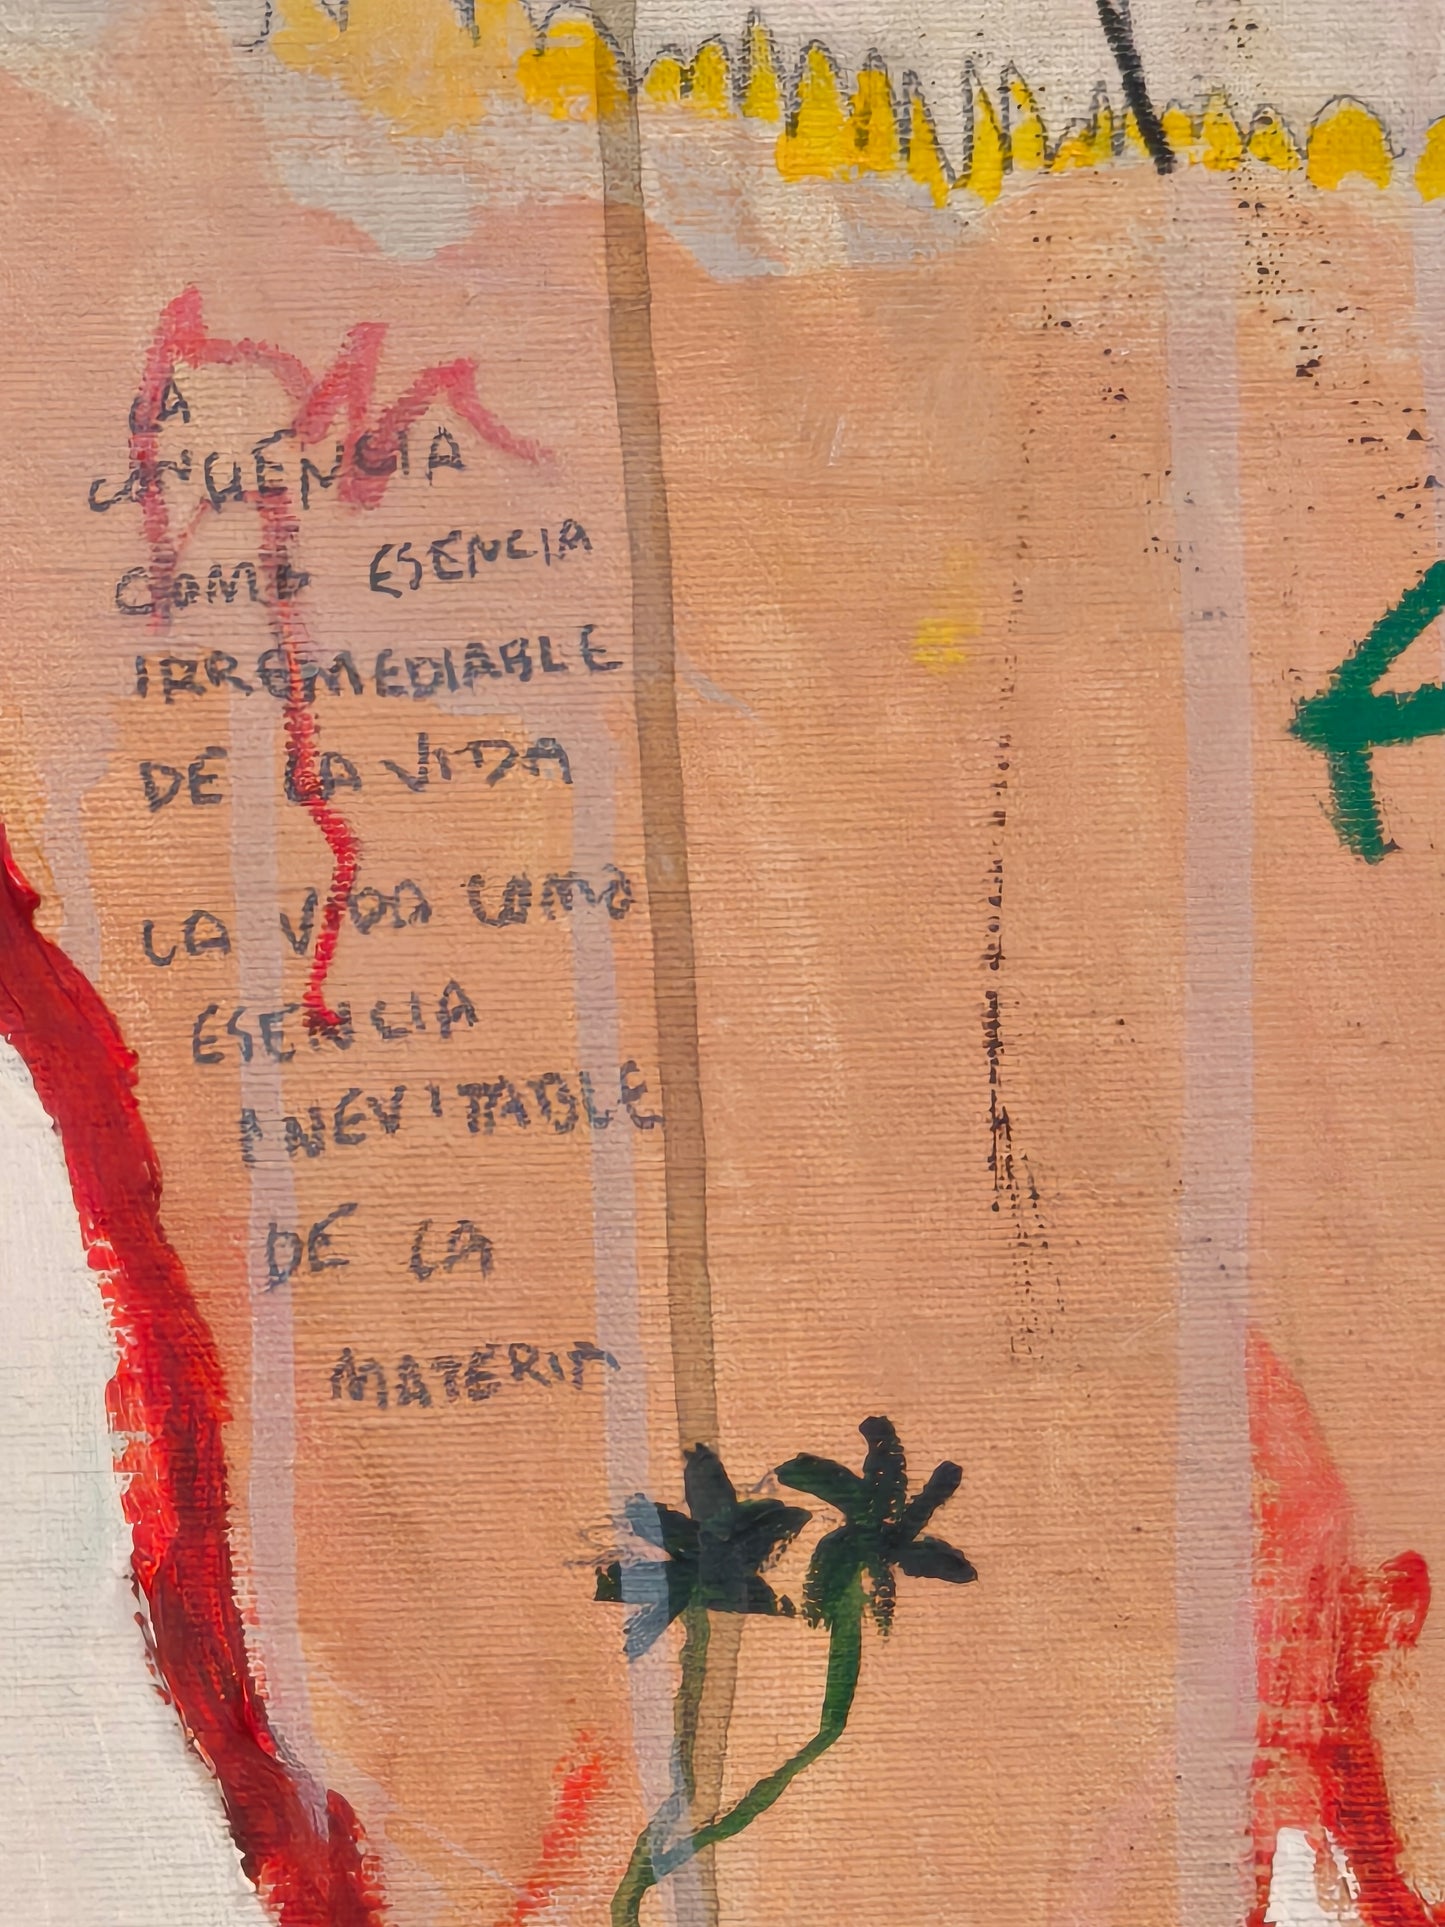 LA
COMO ESENCIA
IRREMEDIABLE
DE LA VIDA
LA VIDA COMO
ESENCIA
INEVITABLE
DE LA
MATERIA